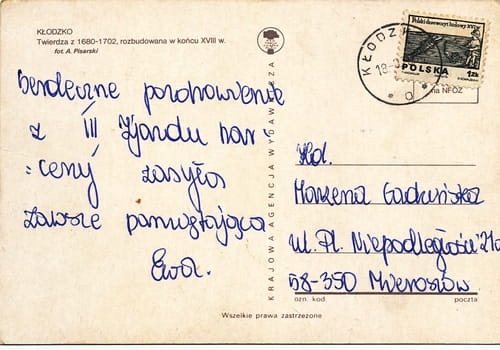 KŁODZKO
Twierdza z 1680-1702, rozbudowana w końcu XVIII w.
fot. A. Pisarski
Serdeczne pozdrowienia
z III Zjazdu har-
-cerzy zasyła
zawsze pamiętająca
Ewa.
KRAJOWA AGENCJA WYDAWNICZA
KŁODZ
18
Polski drzeworyt ludowy XVI
POLSKA
1zł
na NFOZ
Hd.
Marzena
ul. Pl. Niepodległości 21a
58-350 Mieroszów
ozn. kod
poczta
Wszelkie prawa zastrzeżone